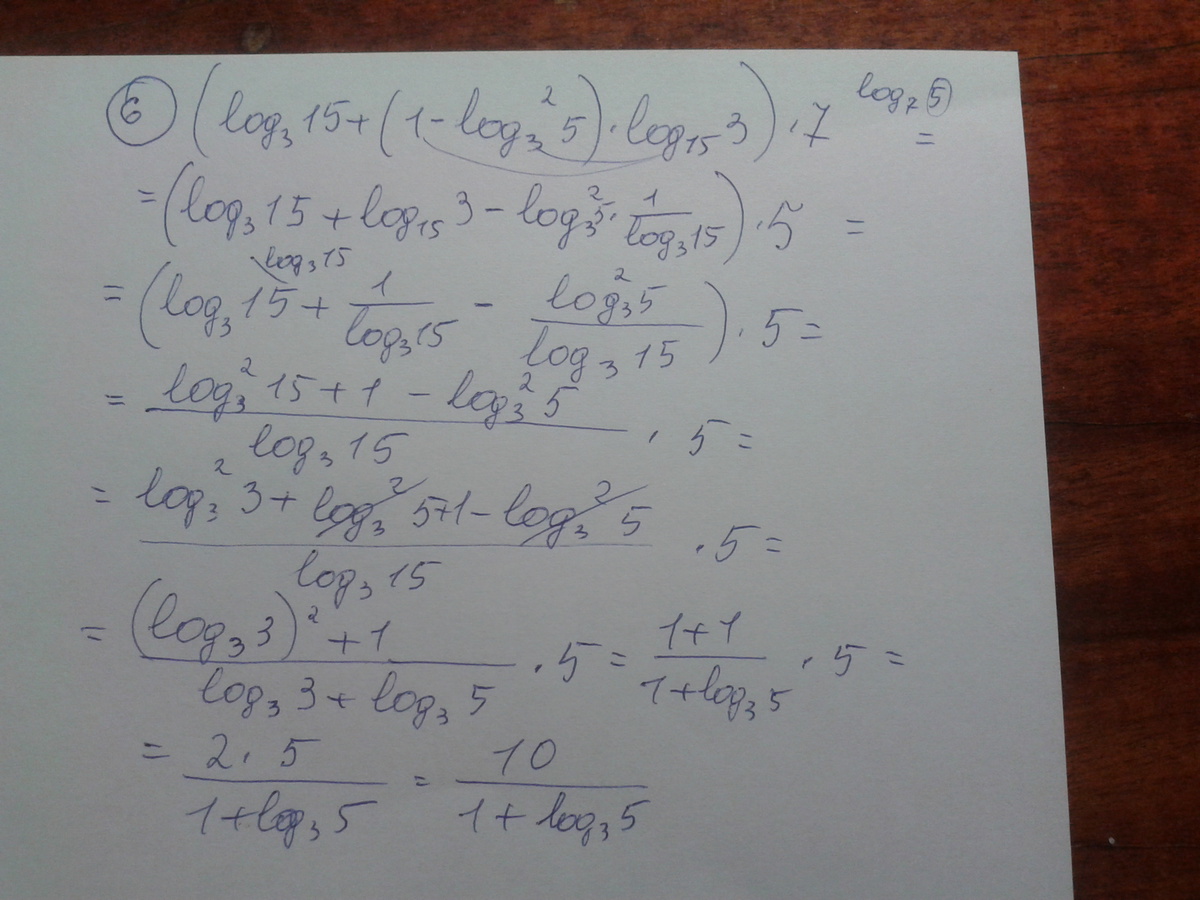 ⑥ (log₃15+(1-log₃²5)·log₁₅3)·7^(log₇5) =
=(log₃15+log₁₅3-log₃²5·1/(log₃15))·5 =
log₃15
=(log₃15+1/(log₃15) - (log₃²5)/(log₃15))·5=
= (log₃²15+1-log₃²5)/(log₃15)·5=
= (log₃²3+log₃²5+1-log₃²5)/(log₃15)·5=
= ((log₃3)²+1)/(log₃3+log₃5)·5= (1+1)/(1+log₃5)·5=
= (2·5)/(1+log₃5) = 10/(1+log₃5)